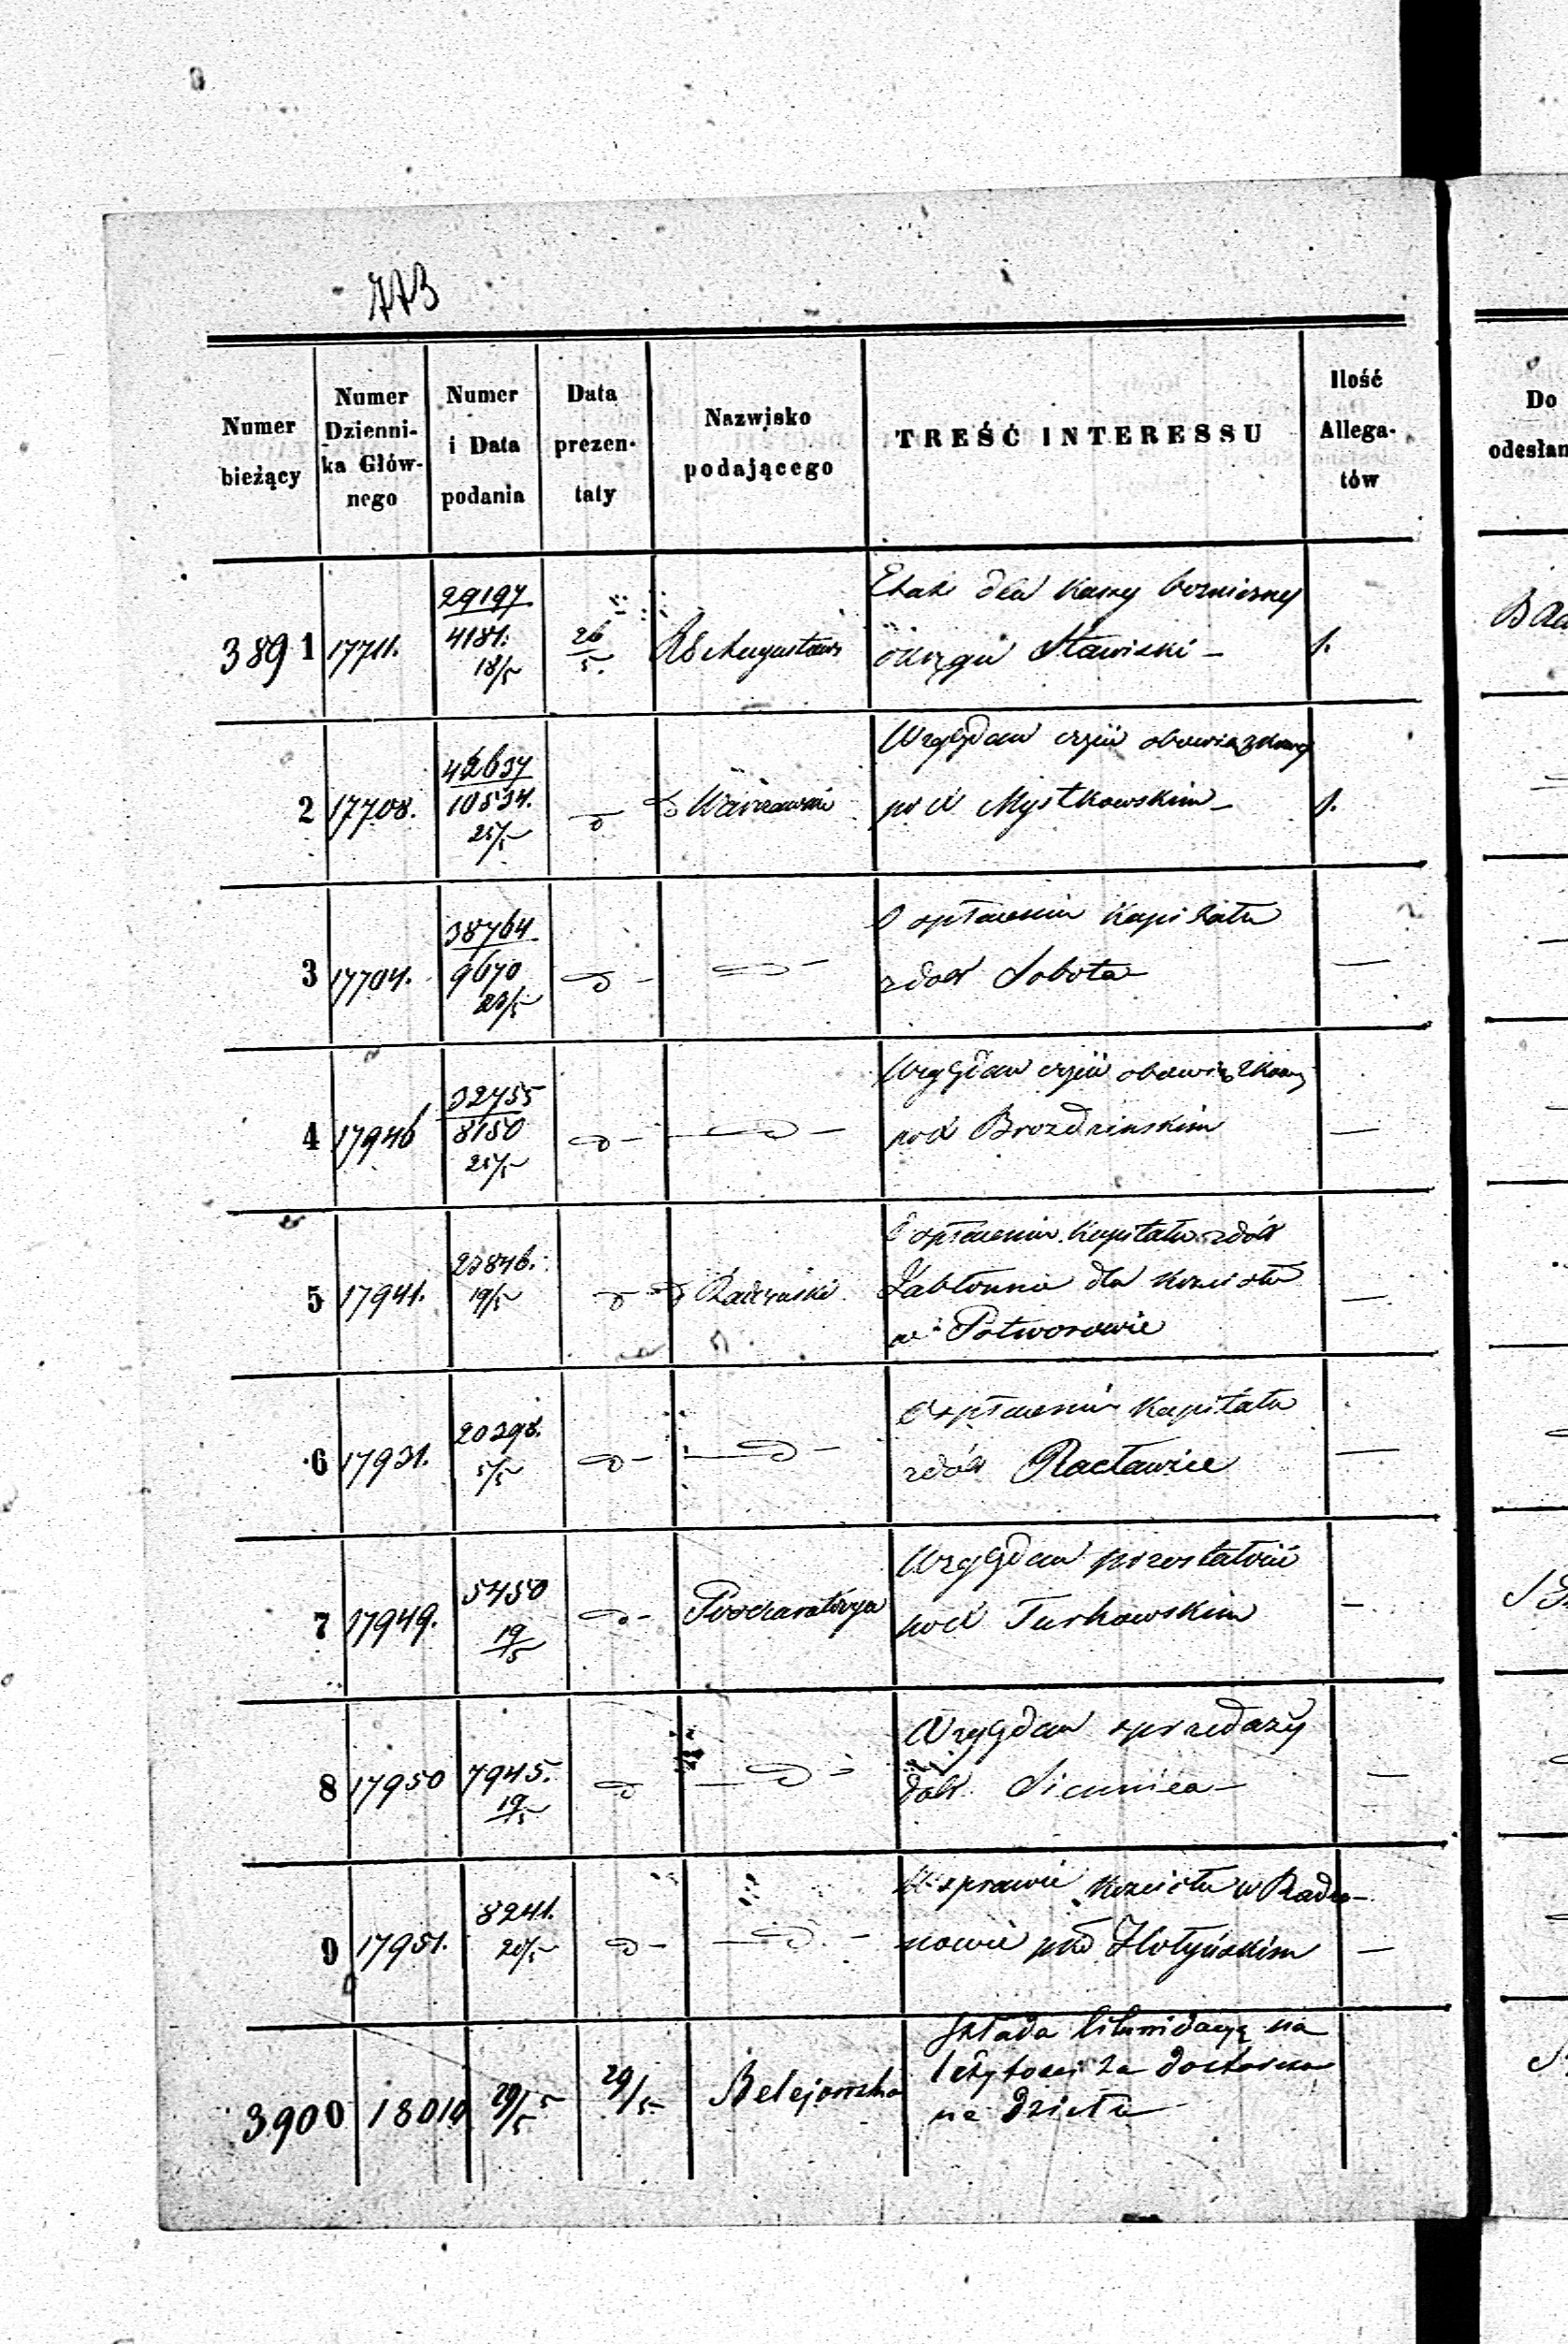 773
Numer bieżący | Numer Dzienni-ka Głów-nego | Numer i Data podania | Data prezen-taty | Nazwisko podającego | TREŚĆ INTERESSU | Ilość Allega-tów | Do odesłan
3891 | 17711. | 29197 4181. 18/5 | 26/5. | RG Augustows | Etat dla Kassy bożniczny
okręgu Stawiski – | 1.
2 | 17708. | 42637 10534. 25/5 | Warszawski | Względem czjiii obowiązkowey
pod Mystkowskim – | 1.
3 | 17704. | 38764 9670 23/5 | O spłaceniu Kapitału
z dóbr Sobota | —
4 | 17946 | 32755 8150 25/5 | Względem czjiii obowiązkowey
pod Brozdzinskim | —
5 | 17941. | 23846. 19/5 | Radomski | O spłaceniu Kapitału z dóbr
Jabłonna dla Kościoła
w Potworowie | —
6 | 17931. | 20298. 5/5 | O spłaceniu Kapitału
z dóbr Racławice | —
7 | 17949. | 5450 19/5 | Prokuratorya | Względem pozostałości
pod Turkowskim | –
8 | 17950 | 7945. 19/5 | Względem sprzedaży
dóbr | —
9 | 17951. | 8241. 20/5 | W sprawie Kościoła w Rado-
nowie pko Złotyńskim | –
3900 | 18010 | 29/5 | 29/5 | Belejowska | Składa likwidacyą na
leżytości za dostawę
na dzieła